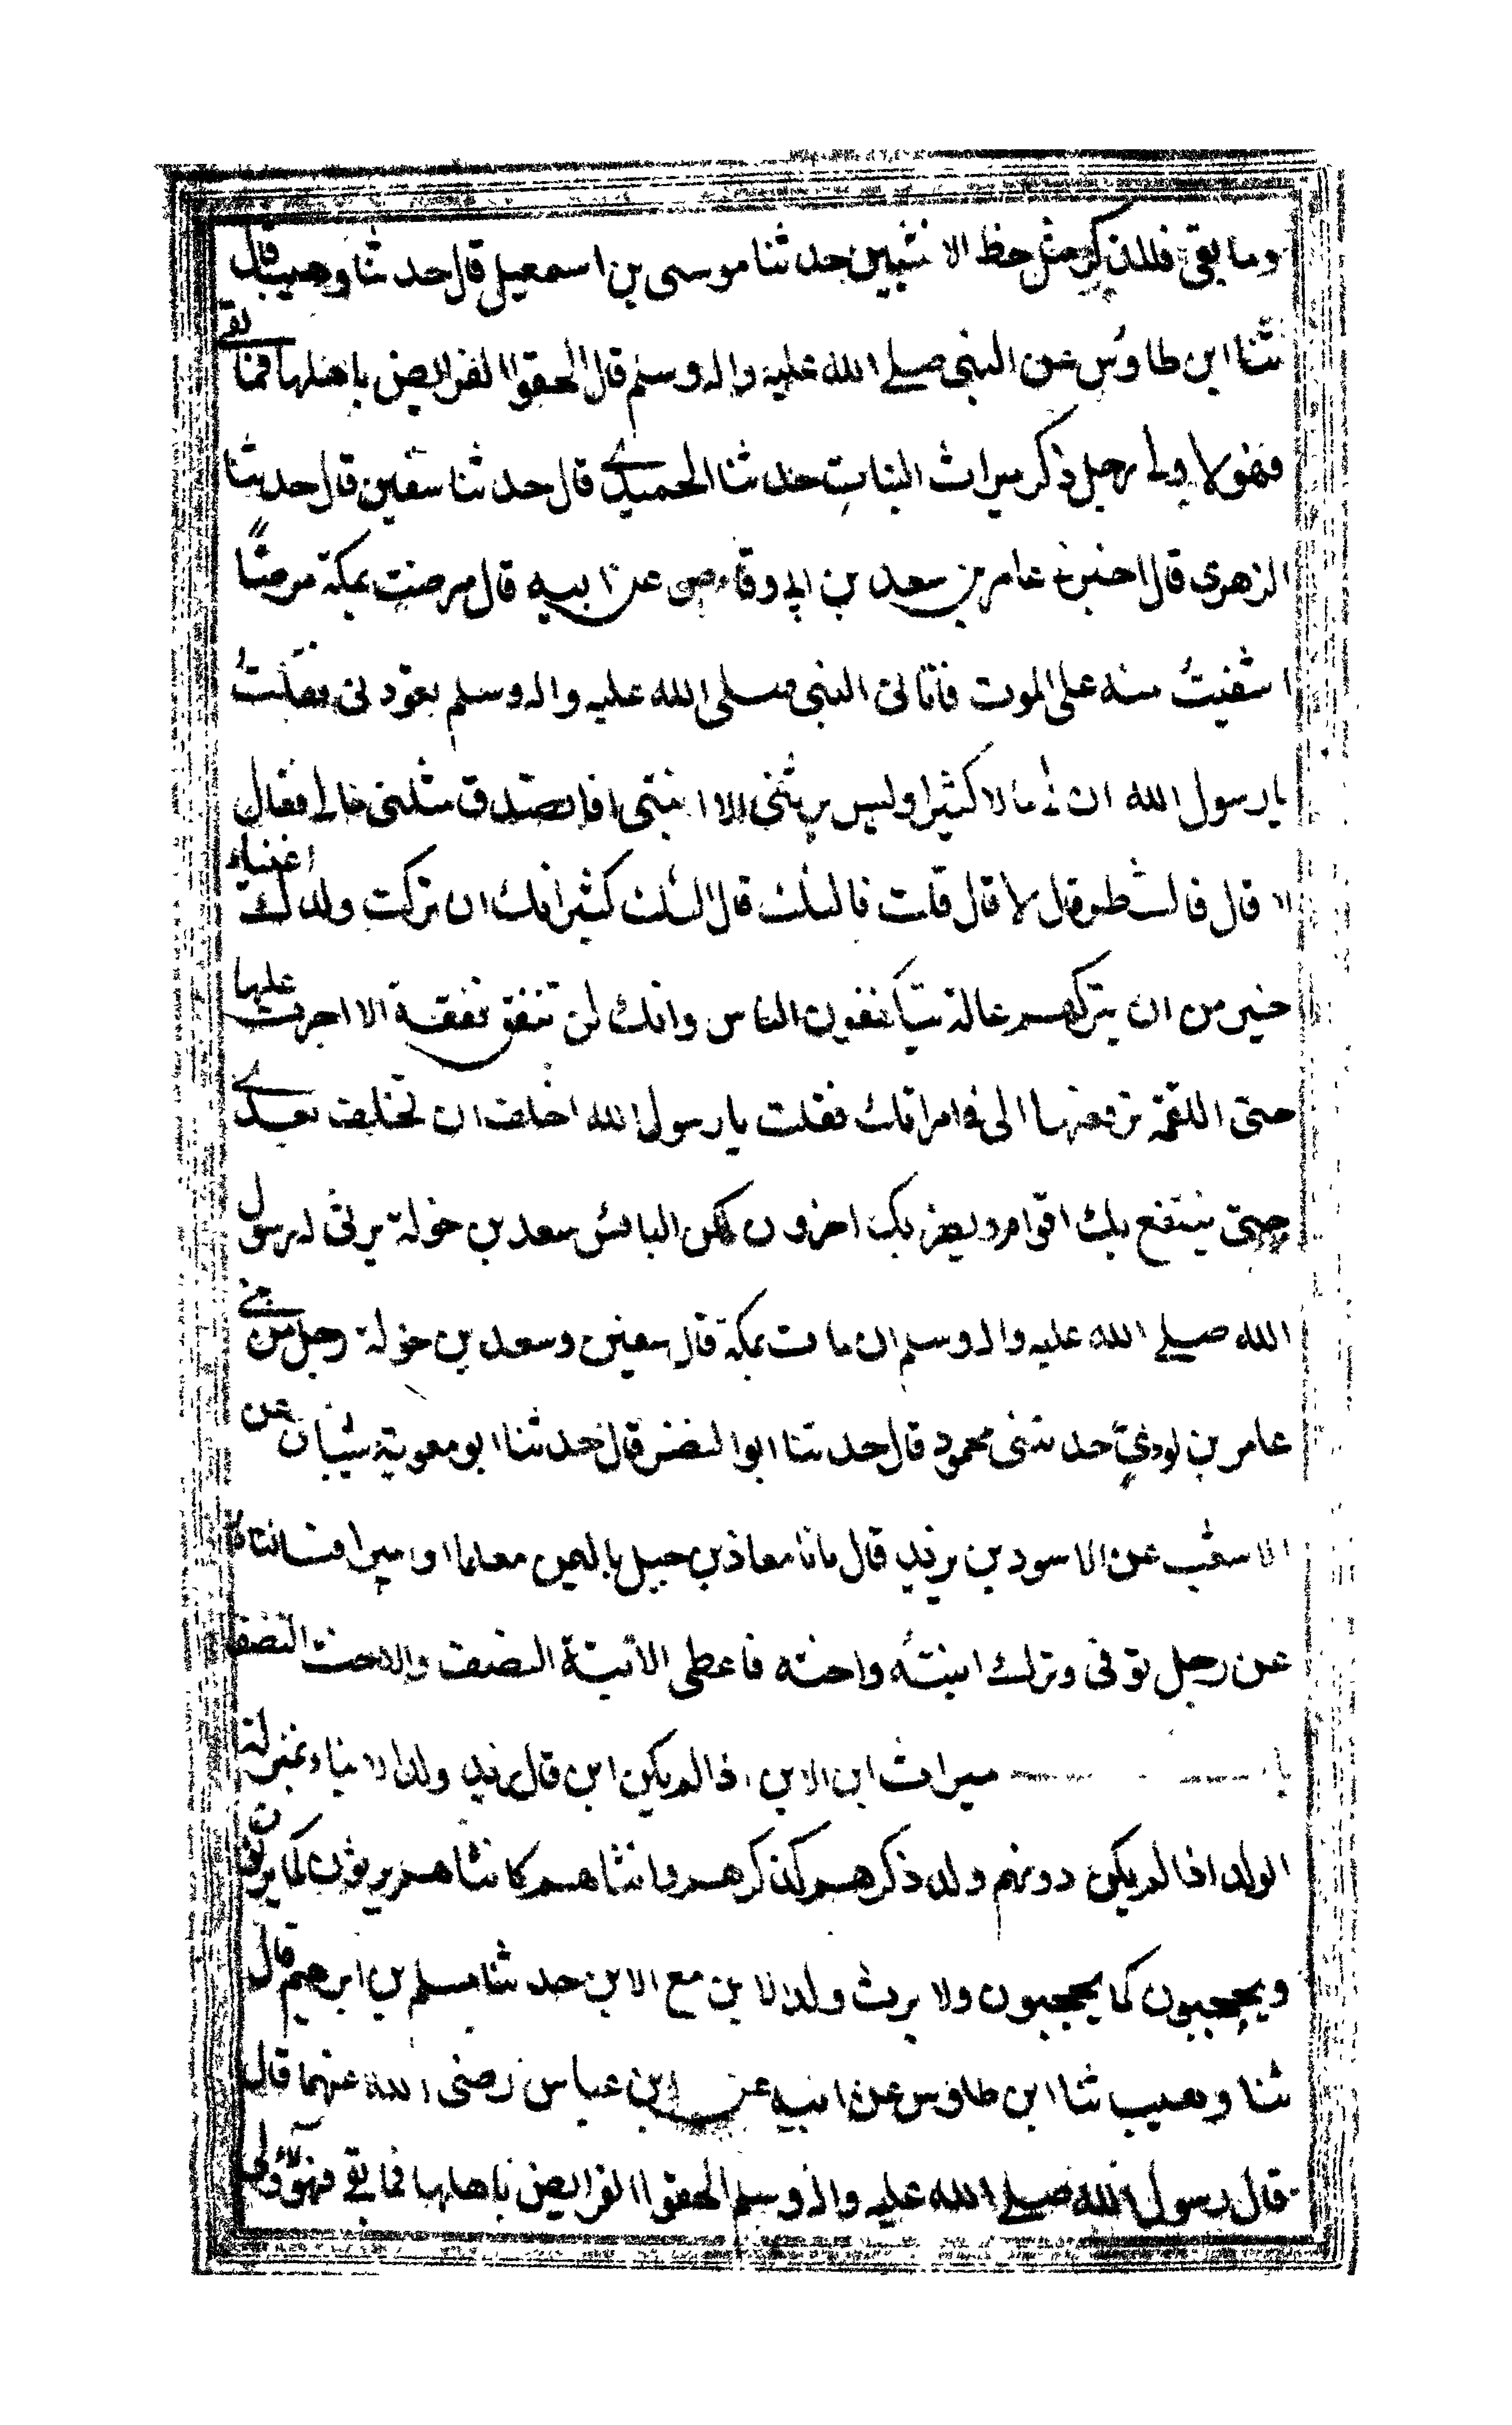 وما بقى فللذكر مثل حظ الانثيين حدثنا موسى بن اسمعيل قال حدثنا وهيب قال
ثنا ابن طاوُس عن النبى صلے الله عليه واله وسلم قال الحقوا الفرايض باهلها فما بقے
فهو لاولے رجل ذكر ميراث البنات حدثنا الحميدے قال حدثنا سفين قال حدثنا
الزهرى قال اخبرنے عامر بن سعد بن ابے وقاص عن ابيه قال مرضت بمكة مرضًا
اشفيتُ منه على الموت فاتانى النبى صلى الله عليه واله وسلم يعودنى فقلتُ
يارسول الله ان لے مالا كثيرا وليس يرثنى الا ابنتى افاتصدق مثلثى مالے فقال
لا قال فالشطر قال لا قال قلت فالثلث قال الثلث كثير انك ان تركت ولدك اغنياء
خير من ان يتركهم عالة يتكففون الناس وانك لن تنفق نفقة الا اجرت عليها
حتى اللقمة ترفعها الى فے امراتك فقلت يارسول الله اخلف ان تخلف بعدے
حتى ينتفع بك اقوام ويضر بك اخرون لكن البائس سعد بن خولة يرثى له رسول
الله صلے الله عليه واله وسلم ان مات بمكة قال سفين وسعد بن خولة رجل من بنے
عامر بن لوىّ حدثنى محمود قال حدثنا ابو النضر قال حدثنا ابو معوية شيبان عن
الاشعث عن الاسود بن يزيد قال اتانا معاذ بن جبل باليمن معلما واميرا فسالناه
عن رجل توفى وترك ابنته واخته فاعطى الابنة النصف والاخت النصف
با ميراث ابن الابن اذا لم يكن ابن قال زيد ولد الابناء بمنزلة
الولد اذا لم يكن دونهم ولد ذكرهم كذكرهم وانثاهم كانثاهم يرثون كما يرثون
ويحجبون كما يحجبون ولا يرث ولد الابن مع الابن حدثنا مسلم بن ابرهيم قال
ثنا وهيب ثنا ابن طاوس عن ابيه عن ابن عباس رضى الله عنهما قال
قال رسول الله صلے الله عليه واله وسلم الحقوا الفرايض باهلها فما بقے فهو لاولى